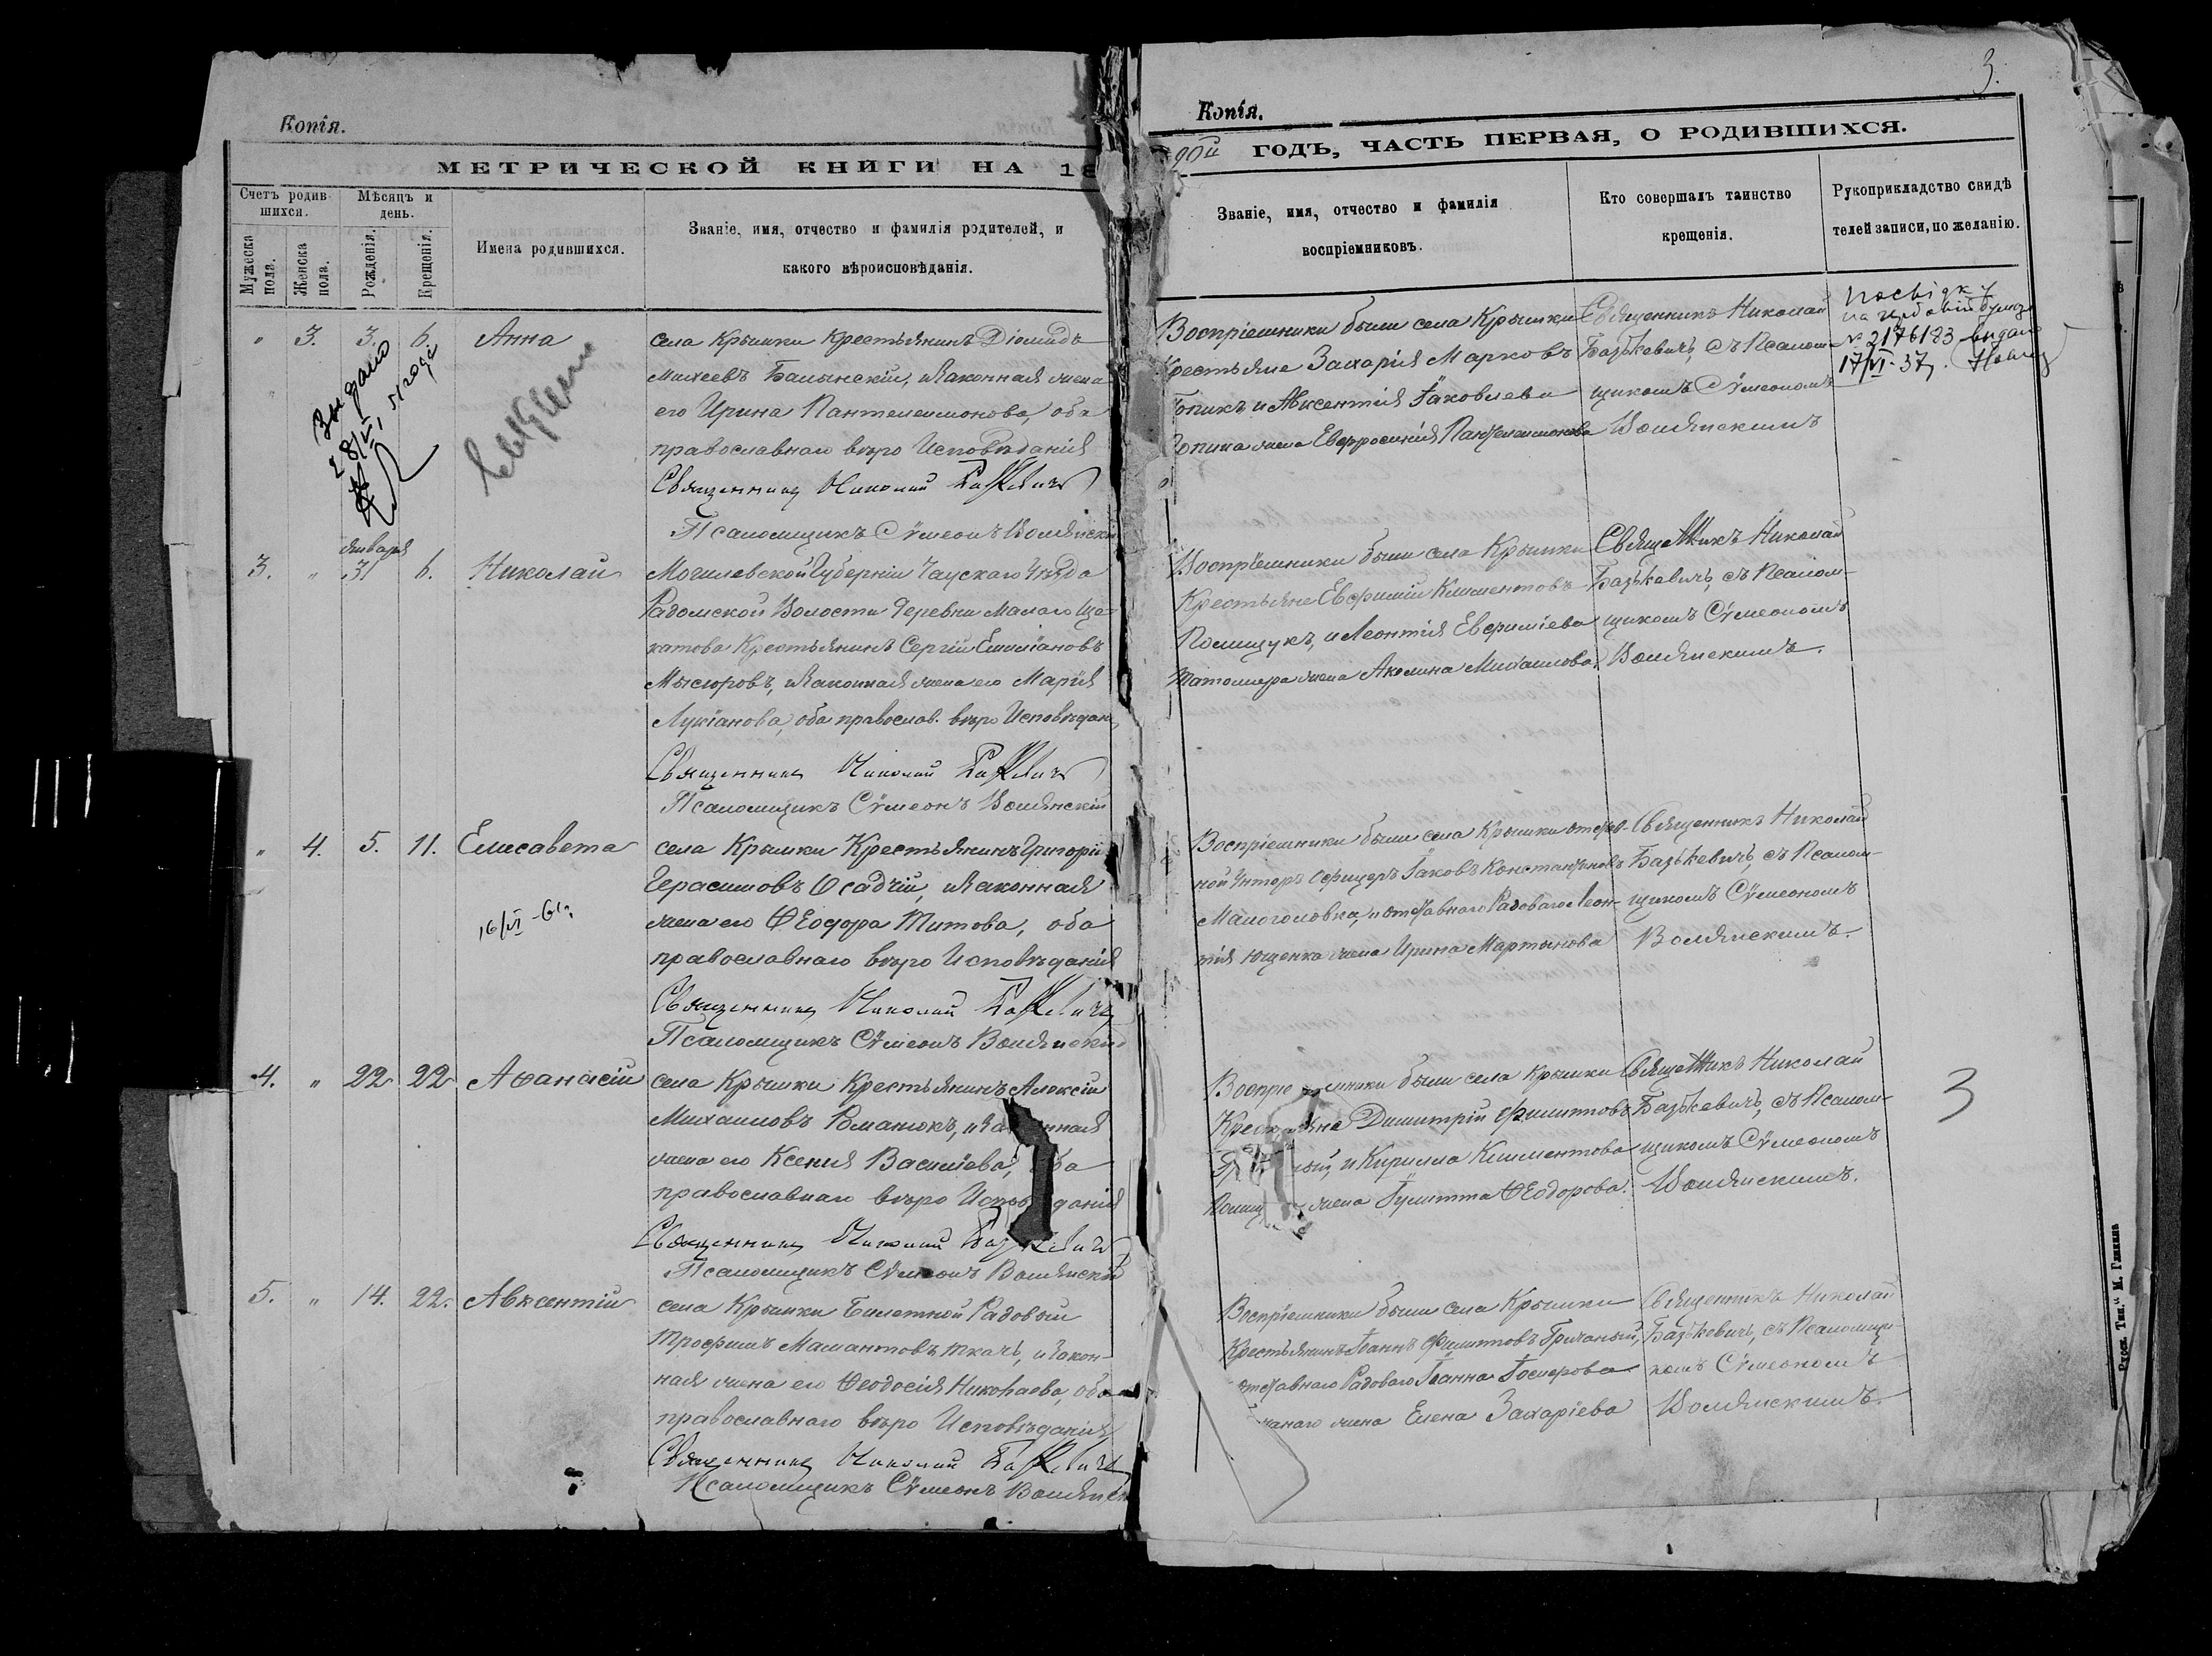 Копія.
МЕТРИЧЕСКОЙ КНИГИ НА 18
Счетъ родившихся.
Мѣсяцъ и день.
Мужеска пола.
Женска пола.
Рожденія.
Крещенія.
Имена родившихся.
Званіе, имя, отчество и фамилія родителей, и
какого вѣроисповѣданія.
" 3. 3. 6. Анна
села Крымки Крестьянинъ Діомидъ
Михеевъ Балынскій, и законная жена
его Ирина Пантелеимонова, оба
православнаго вѣро Исповѣданія
Священникъ Николай
Псаломщикъ Сѵмеонъ
Января
3. " 31 6. Николай
Могилевской Губерніи Чаускаго Уѣзда
Радомской Волости Деревни Малаго Ще-
катова Крестьянинъ Сергій Емиліановъ
и законная жена его Марія
Лукіанова, оба православ. вѣро Исповѣдан.
Священникъ Николай
Псаломщикъ Сѵмеонъ Волянскій
" 4. 5. 11. Елисавета
села Крымки Крестьянинъ Григорій
Герасимовъ Осадчій, и законная
жена его Ѳеодора Титова, оба
православнаго вѣро Исповѣданія
Священникъ Николай
Псаломщикъ Сѵмеонъ Волянскій
4. " 22 22 Аѳанасій
села Крымки Крестьянинъ Алексій
Михаиловъ Романюкъ,
жена его Ксенія Василіева,
православнаго вѣро
Священникъ Николай
Псаломщикъ Сѵмеонъ Волянскій
5. " 14. 22. Авксентій
села Крымки Билетной Рядовый
Трофимъ Мамантовъ Ткачъ, и закон-
ная жена его Ѳеодосія Николаева, оба
православнаго вѣро Исповѣданія
Священникъ Николай
Псаломщикъ Сѵмеонъ
Выдано
28/VI
16/VI-61г.
3.
Копія.
90й ГОДЪ, ЧАСТЬ ПЕРВАЯ, О РОДИВШИХСЯ.
Званіе, имя, отчество и фамилія
воспріемниковъ.
Кто совершалъ таинство
крещенія.
Рукоприкладство свидѣ
телей записи, по желанію.
Воспріемники были села Крымки
Крестьяне Захарія Марковъ
и Авксентія Іаковлева
жена Евфросинія Пантелеимонова
Священникъ Николай
Базькевичъ, съ Псалом-
щикомъ Сѵмеономъ
Волянскимъ
№ 2176183 видано
17/VI-37
Воспріемники были села Крымки
Крестьяне Евфимій Климентовъ
Полищукъ, и Леонтія Евфиміева
жена Акилина Михаилова.
Священникъ Николай
Базькевичъ, съ Псалом-
щикомъ Сѵмеономъ
Волянскимъ.
Воспріемники были села Крымки отстав-
ной Унтеръ Офицеръ Іаковъ Константиновъ
Малоголовка, и отставнаго Рядоваго Леон-
тія Ющенка жена Ирина Мартынова
Священникъ Николай
Базькевичъ, съ Псалом-
щикомъ Сѵмеономъ
Волянскимъ.
были села Крымки
Димитрій Филипповъ
и Кирилла Климентова
жена Іулитта Ѳеодорова.
Священникъ Николай
Базькевичъ, съ Псалом-
щикомъ Сѵмеономъ
Волянскимъ.
3
Воспріемники были села Крымки
Крестьянинъ Іоаннъ Филипповъ Гричаный,
отставнаго Рядоваго Іоанна
жена Елена Захаріева
Священникъ Николай
Базькевичъ, съ Псаломщи-
комъ Сѵмеономъ
Волянскимъ.